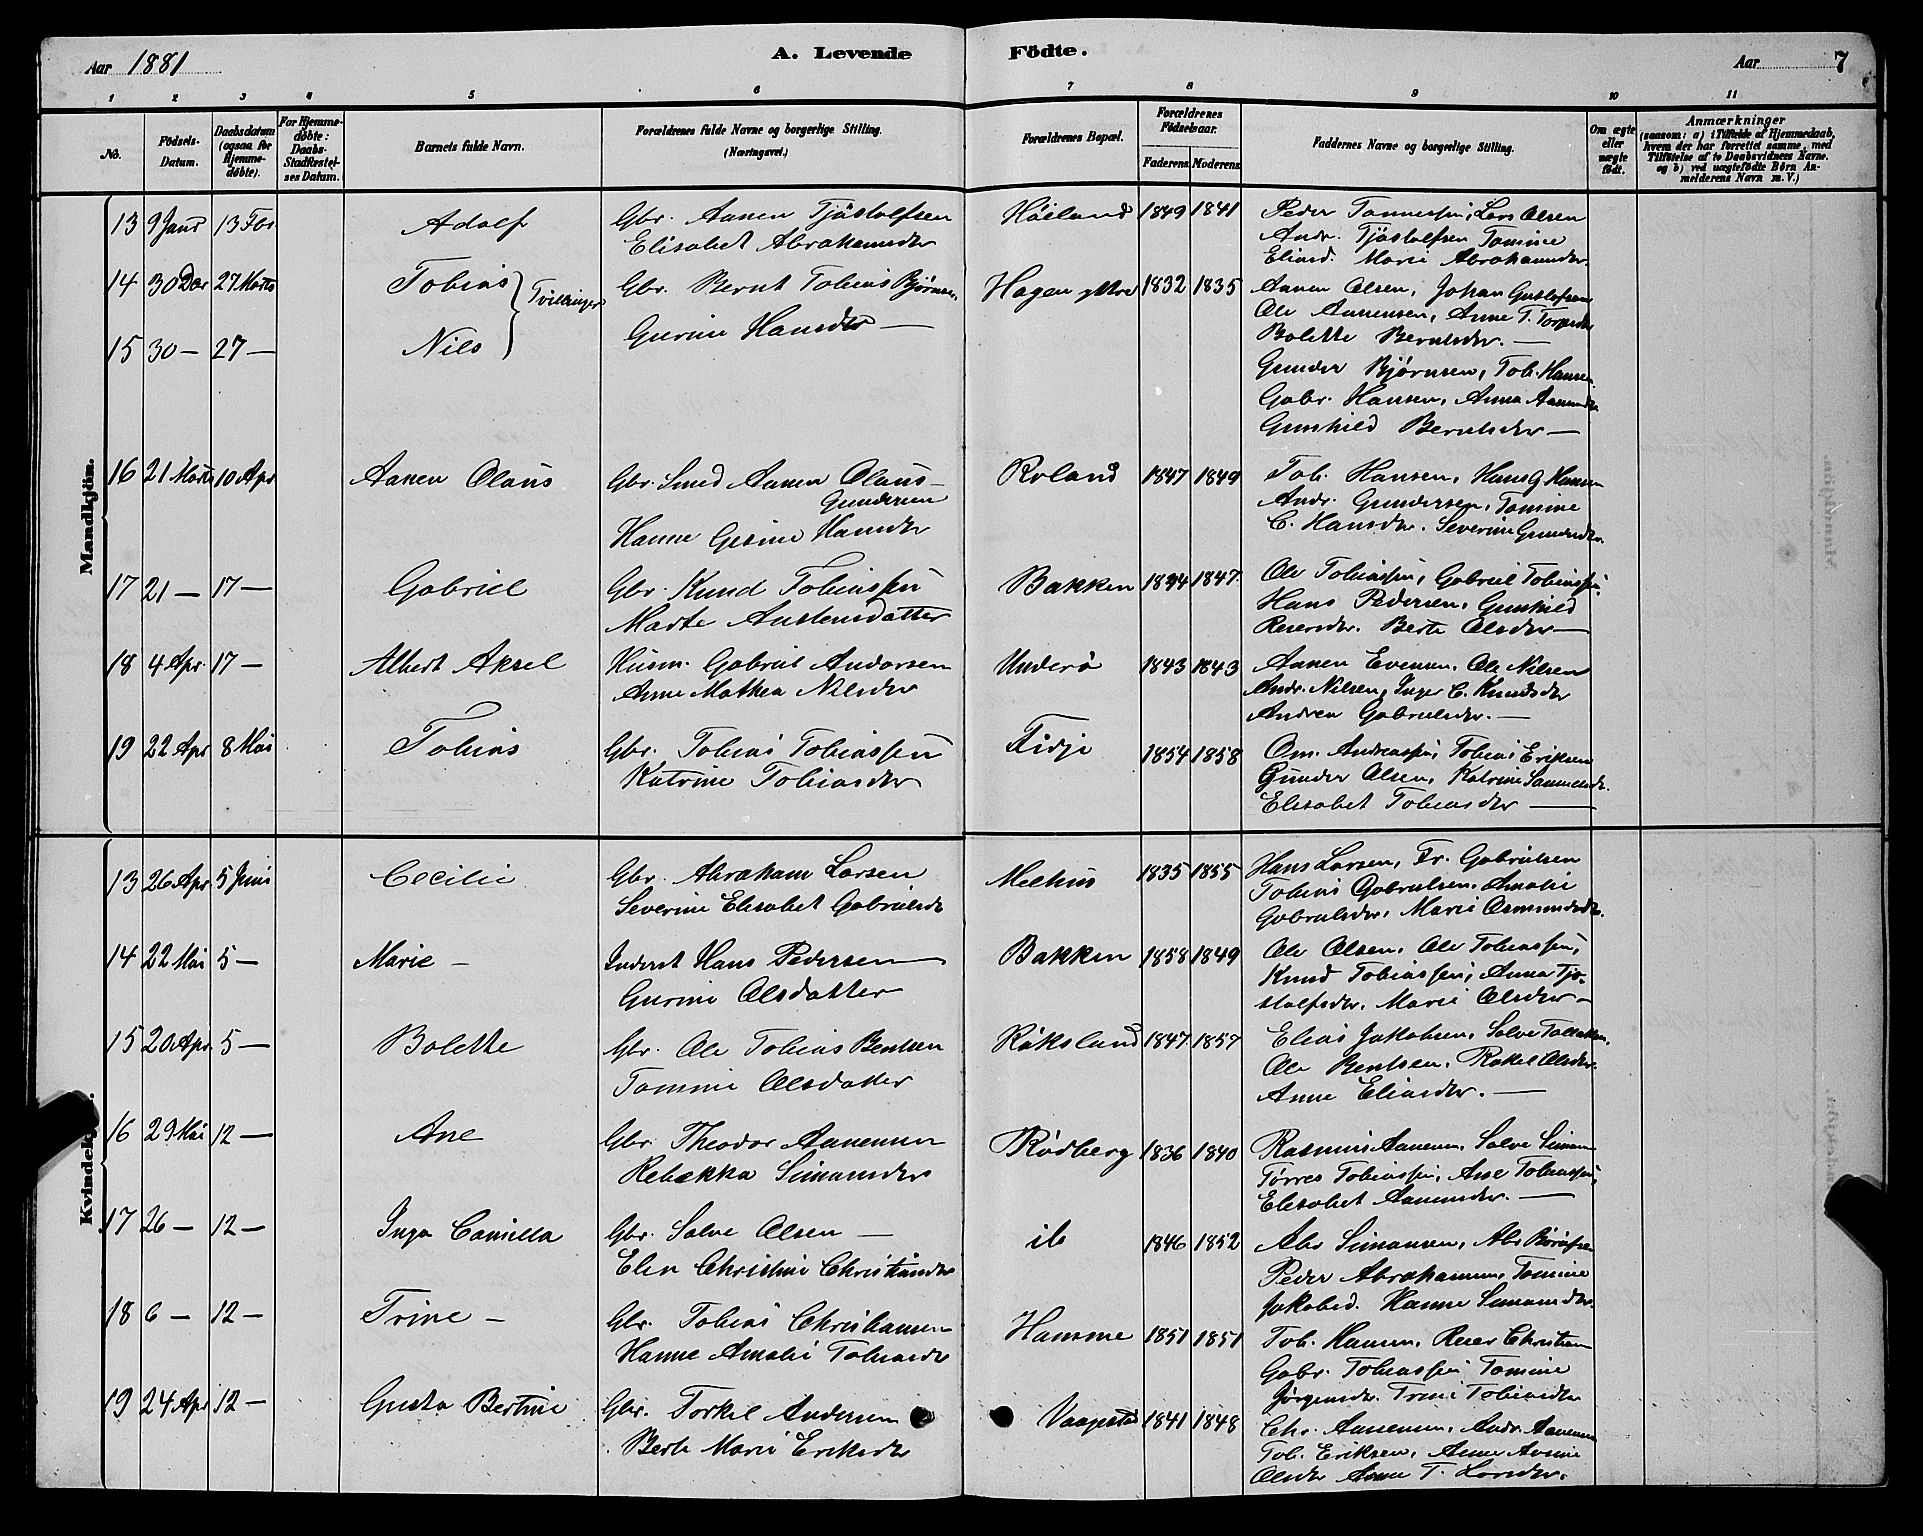 Aar 1881 A. Levende Födte. Aar 7
1 2 3 4 5 6 7 8 9 10 11
No.
Födsels-Datum.
Daabsdatum (ogsaa for Hjemmedøbte).
For Hjemmedøbte: Daabs-Stadfæstelses Datum.
Barnets fulde Navn.
Forældrenes fulde Navne og borgerlige Stilling. (Næringsvei.)
Forældrenes Bopæl.
Forældrenes Födselsaar.
Faderens Moderens
Faddernes Navne og borgerlige Stilling.
Om ægte eller uægte født.
Anmærkninger
(saasom: a) i Tilfælde af Hjemmedaab, hvem der har forrettet samme, med Tilføielse af to Daabsvidners Navne. og b) ved uægtefødte Børn Anmelderens Navn m. V.)
Mandkjön.
13 9 Janr 13 Fbr Adolf Gbr. Aanen Tjöstolfsen Höiland 1849 1841 Peder Tonnessen, Lars Olsen
Elisabet Abrahamsdr Andr. Tjöstolfsen Tomine
Eliasd. Marie Abrahamsdr.
14 30 Dec 27 Marts Tobias Tvillinger Gbr. Bernt Tobias Bjørnsen Hagen yttre 1832 1835 Aanen Olsen, Johan Gustafsen
Ole Aanensen, Anne T.
15 30 — 27 — Nils Gurine Hansdr — Bolette Berntsdr. —
Gunder Bjørnsen, Tob. Hansen
Gabr. Hansen, Anna Aanensdr
Gunhild Berntsdr —
16 21 Marts 10 Apr Aanen Olaus Gbr. Smed Aanen Olaus Gundersen Roland 1847 1849 Tob. Hansen, Hans G Hansen
Hanne Gesine Hansdr Andr. Gundersen, Tomine
C. Hansdr. Severine Gundersdr.
17 21 — 17 — Gabriel Gbr. Knud Tobiassen Bakken 1847 Ole Tobiassen, Gabriel Tobiassen
Marte Austensdatter Hans Pedersen, Gunhild
Reiersdr. Berte Olsdr —
18 4 Apr. 17 — Albert Aksel Husm. Gabriel Andersen Underö 1843 1843 Aanen Evensen, Ole Nilsen
Anne Mathea Nilsdr Andr. Nilsen, Inger C. Knudsdr
Andrea Gabrielsdr. —
19 22 Apr 8 Mai Tobias Gbr. Tobias Tobiassen Fidje 1854 1858 Om. Andreassen, Tobias Eriksen
Katrine Tobiasdr Gunder Olsen, Katrine Samuelsdr.
Elisabet Tobiasdr —
Kvindekjön.
13 26 Apr 5 Juni Cecilie Gbr. Abraham Larsen Meehus 1835 1855 Hans Larsen, Fr. Gabrielsen
Severine Elisabet Gabrielsdr Tobias Gabrielsen, Amalie
Gabrielsdr, Marie Osmundsdr.
14 22 Mai 5 — Marie — Inderst Hans Pedersen Bakken 1858 1849 Ole Olsen, Ole Tobiassen,
Gurine Olsdatter Knud Tobiassen, Anna Tjö-
stolfsdr, Marie Olsdr —
15 20 Apr. 5 — Bolette Gbr. Ole Tobias Bentsen Röksland 1847 1857 Elias Jakobsen, Salve
Tomine Olsdatter Ole Bentsen, Rakel Olsdr.
Anne Eliasdr. —
16 29 Mai 12 — Ane Gbr. Theodor Aanensen Rödberg 1836 1840 Rasmus Aanensen, Salve Simonsen
Rebekka Simonsdr Törres Tobiassen, Ane Tobiassen,
Elisabet Aanensdr. —
17 26 — 12 — Inga Camilla Gbr. Salve Olsen — ib 1846 1852 Abr Simonsen, Abr
Elen Christine Christiansdr Peder Abrahamsen, Tomine
Jakobsd. Hanne Simonsdr.
18 6 — 12 — Trine — Gbr. Tobias Christiansen Hamme 1851 1851 Tob. Hansen, Reier Christian
Hanne Amalie Tobiasdr Gabr. Tobiassen Tomine
Jörgensdr. Trine Tobiasdr
19 24 Apr 12 — Gusta Bertine Gbr. Torkel Andersen Vaagestad 1841 1848 Chr. Aanensen, Andr. Aanensen
Berte Marie Eriksdr Tob. Eriksen, Anne
Olsdr Anne T. Larsdr.